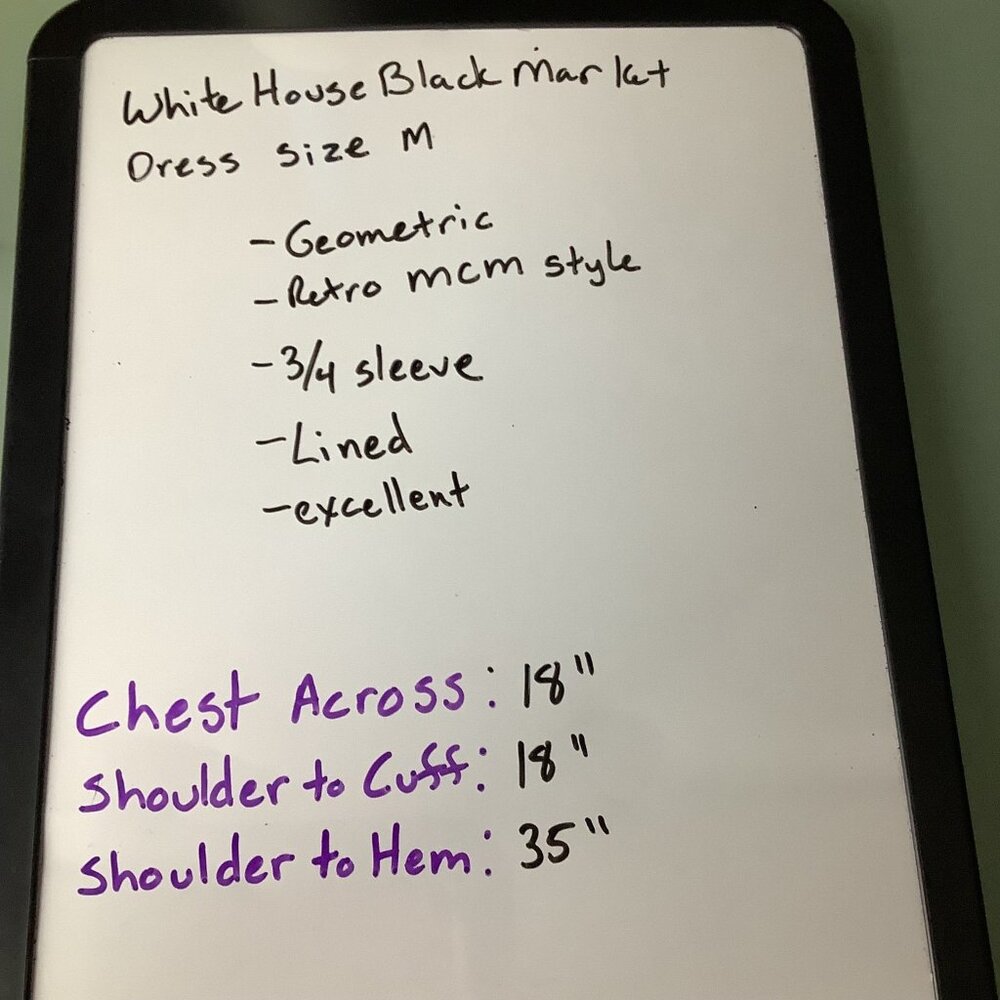 White House Black Market
Dress size M
- Geometric
- Retro mcm style
- 3/4 sleeve
- Lined
- excellent
Chest Across: 18"
Shoulder to Cuff: 18"
Shoulder to Hem: 35"